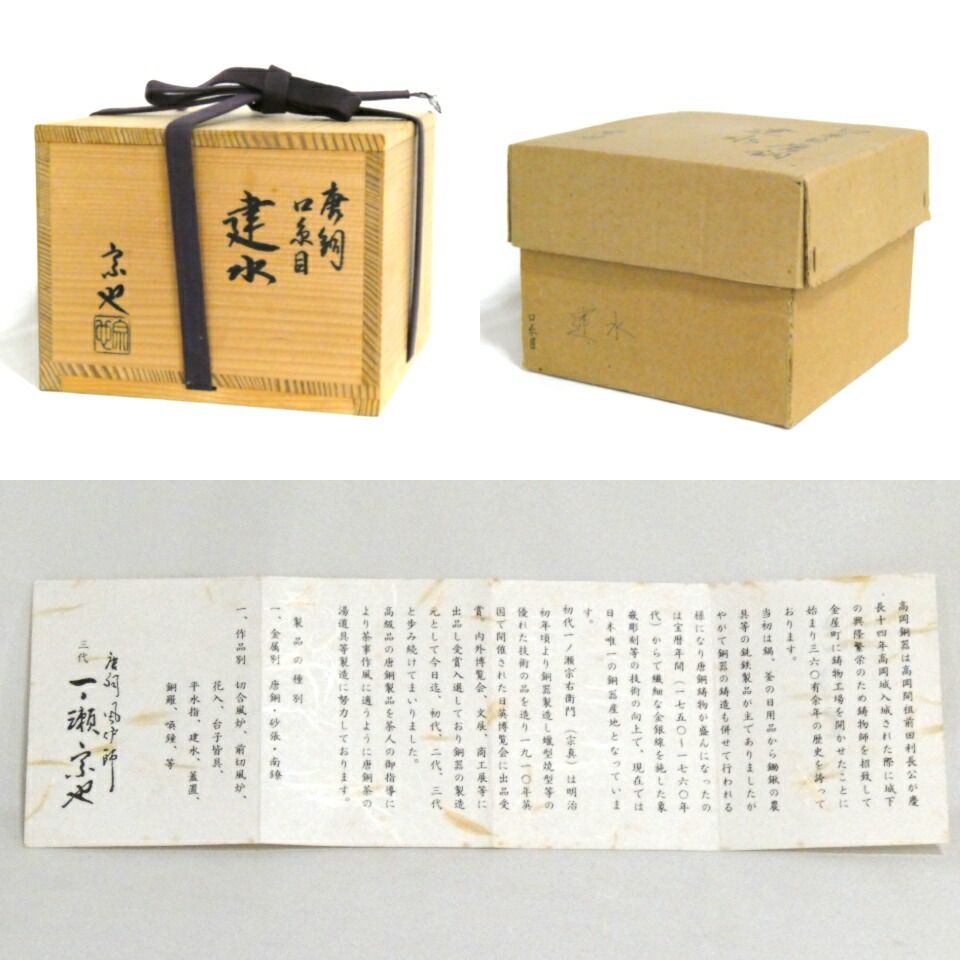 唐銅
口糸目
建水
宗也
建水
口糸目
高岡銅器は高岡開祖前田利長公が慶
長十四年高岡城入城された際に城下
の興隆繁栄のため鋳物師を招致して
金屋町に鋳物工場を開かせたことに
始まり三六〇有余年の歴史を誇って
おります。
当初は鍋、釜の日用品から鋤鍬の農
具等の銑鉄製品が主でありましたが
やがて銅器の鋳造も併せて行われる
様になり唐銅鋳物が盛んになったの
は宝暦年間(一七五〇~一七六〇年
代)からで繊細な金銀線を施した象
嵌彫刻等の技術の向上で、現在では
日本唯一の銅器産地となっていま
す。
初代一ノ瀬宗右衛門(宗真)は明治
初年頃より銅器製造し蠟型焼型等の
優れた技術の品を造り一九一〇年英
国で開催された日英博覧会に出品受
賞、内外博覧会、文展、商工展等に
出品し受賞入選しており銅器の製造
元として今日迄、初代、二代、三代
と歩み続けてまいりました。
高級品の唐銅製品を茶人の御指導に
より茶事作風に適うように唐銅茶の
湯道具等製造に努力しております。
製品の種別
一、金属別 唐銅・砂張・南鐐
一、作品別 切合風炉、前切風炉、
花入、台子皆具、
平水指、建水、蓋置、
銅羅、喚鐘、等
唐銅風炉師
三代 一ノ瀬宗也